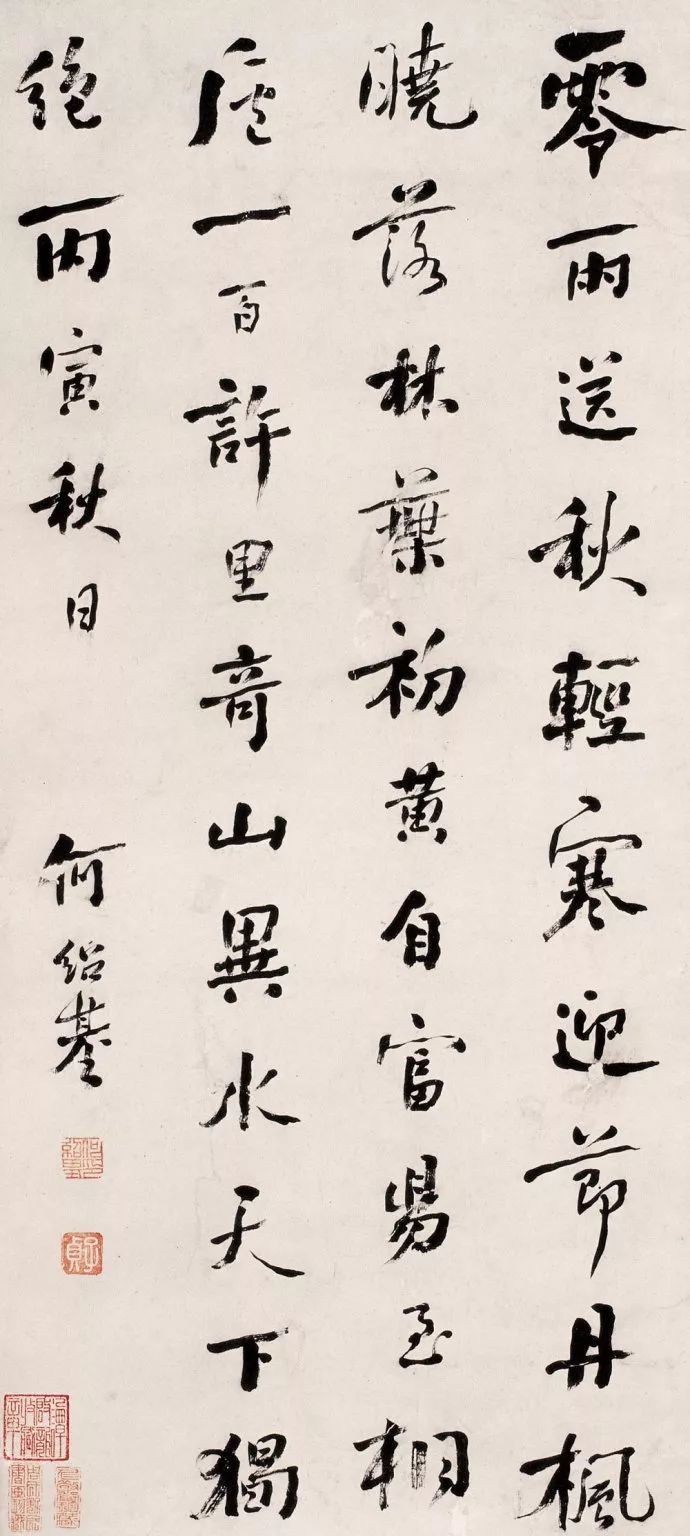 零雨送秋輕寒迎節丹楓
曉落林葉初黃自富陽至桐
廬一百許里奇山異水天下獨
絕丙寅秋日
何紹基
何紹基印
子貞